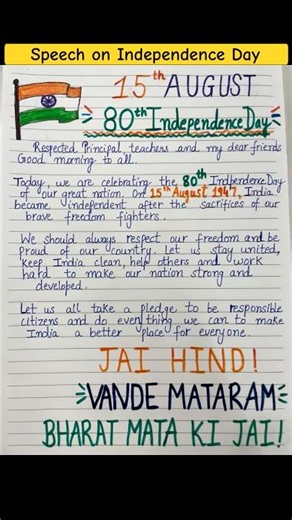 Speech on Independence Day
15th AUGUST
80th Independence Day
Respected Principal, teachers and my dear friends
Good morning to all.
Today, we are celebrating the 80th Independence Day
of our great nation. On 15th August 1947, India
became independent after the sacrifices of our
brave freedom fighters.
We should always respect our freedom and be
proud of our country. Let us stay united,
keep India clean, help others and work
hard to make our nation strong and
developed.
Let us all take a pledge to be responsible
citizens and do everything we can to make
India a better place for everyone.
JAI HIND!
VANDE MATARAM
BHARAT MATA KI JAI!